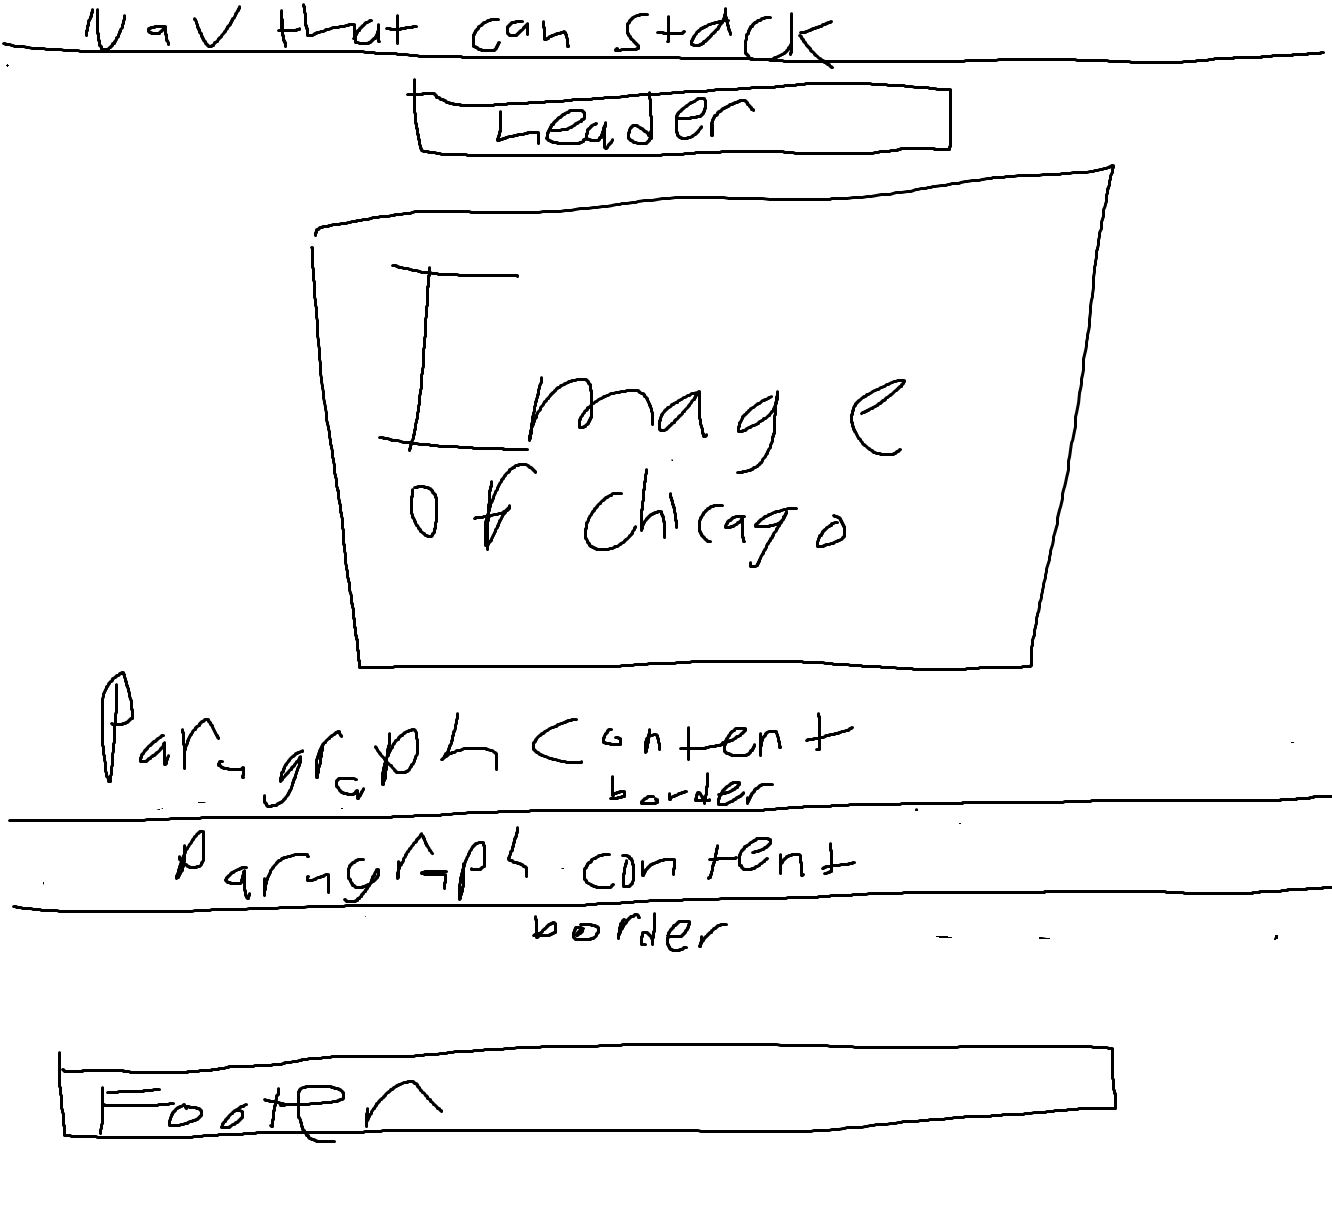 Nav that can stack
header
Image
of chicago
Paragraph content
border
Paragraph content
border
Footer